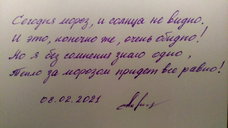 Сегодня мороз, и солнца не видно.
И это, конечно же, очень обидно!
Но я без сомнения знаю одно,
Тепло за морозом придёт всё равно!
08.02.2021